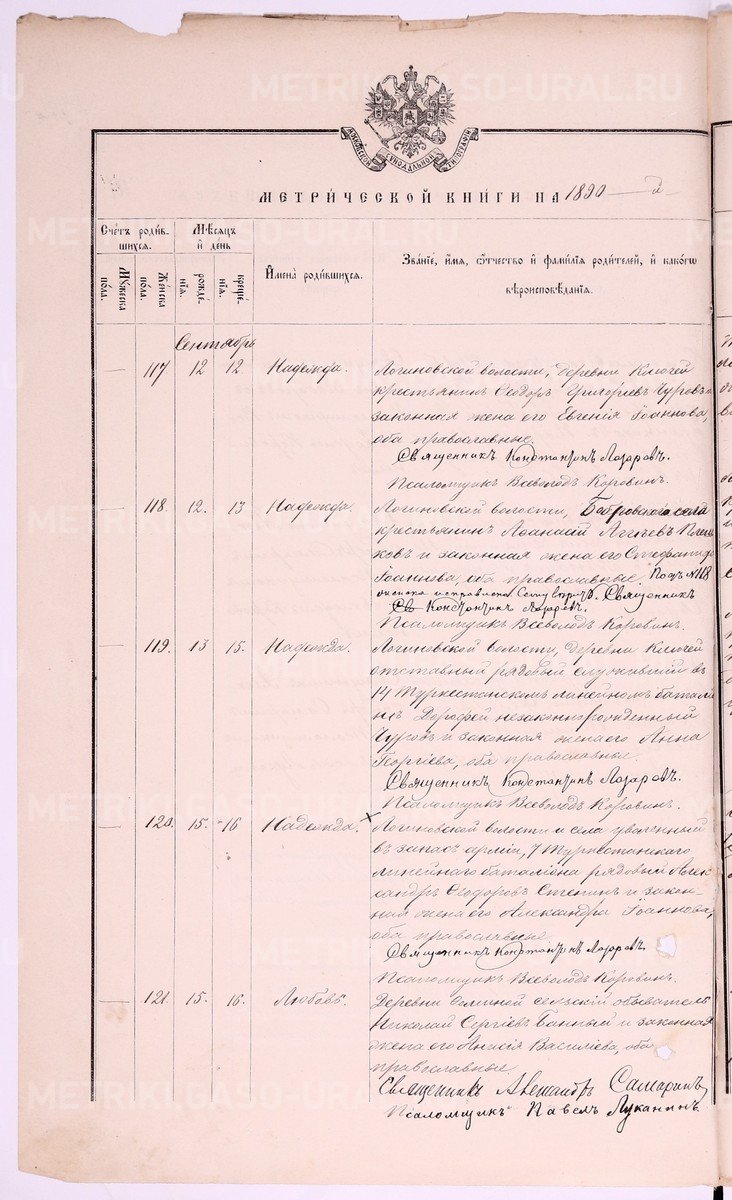 METRIKI.UISO-URAL.RU
ДУХОВНОЙ СИНОДАЛЬНОЙ ТИПОГРАФІИ
МЕТРИ́ЧЕСКОЙ КНИ́ГИ НА 1890 г.
Сче́тъ роди́в-
шихся.
Мꙋ́жеска
пола.
Же́нска
пола.
Мѣ́сяцъ
и де́нь
рожде́-
нія.
креще́-
нія.
Имена̀ роди́вшихся.
Зва́ніе, и́мя, ѻ҆́тчество и фами́лія роди́телей, и како́гѡ
вѣроисповѣ́данія.
Сентябрь
— 117 12 12 Надежда. Логиновской волости, деревни Ключей
крестьянинъ Ѳеодоръ Григоріевъ Чуровъ и
законная жена его Евгенія Іоаннова,
оба православные.
Священникъ Константинъ Лазаревъ.
Псаломщикъ Всеволодъ Коровинъ.
— 118. 12. 13 Надежда. Логиновской волости, Бобровского села
крестьянинъ
ковъ и законная жена его Стефанида
Іоаннова, оба православные. Подъ № 118
Священникъ
Св Константинъ Лазаревъ.
Псаломщикъ Всеволодъ Коровинъ.
— 119. 13 15. Надежда. Логиновской волости, деревни Ключей
отставный рядовый служившій въ
14 Туркестанскомъ линейномъ батали
нѣ Дорофей незаконнорожденный
Чуровъ и законная жена его Анна
Георгіева, оба православные.
Священникъ Константинъ Лазаревъ.
Псаломщикъ Всеволодъ Коровинъ.
— 120. 15. 16 Надежда. × Логиновской волости и села уволенный
въ запасъ арміи, 7 Туркестанскаго
линейнаго баталіона рядовый Алек
сандръ Ѳеодоровъ Степинъ и закон-
ная жена его Александра Іоаннова,
оба православные
Священникъ Константинъ Лазаревъ.
Псаломщикъ Всеволодъ Коровинъ.
— 121 15. 16. Любовь. Деревни сельскій обыватель
Николай Сергіевъ Банный и законная
жена его Анисія Василіева, оба
православные
Священникъ Александръ Самаринъ
Псаломщикъ Павелъ Луканинъ